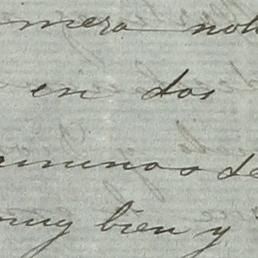 mera not
en dos
minos de
muy bien y